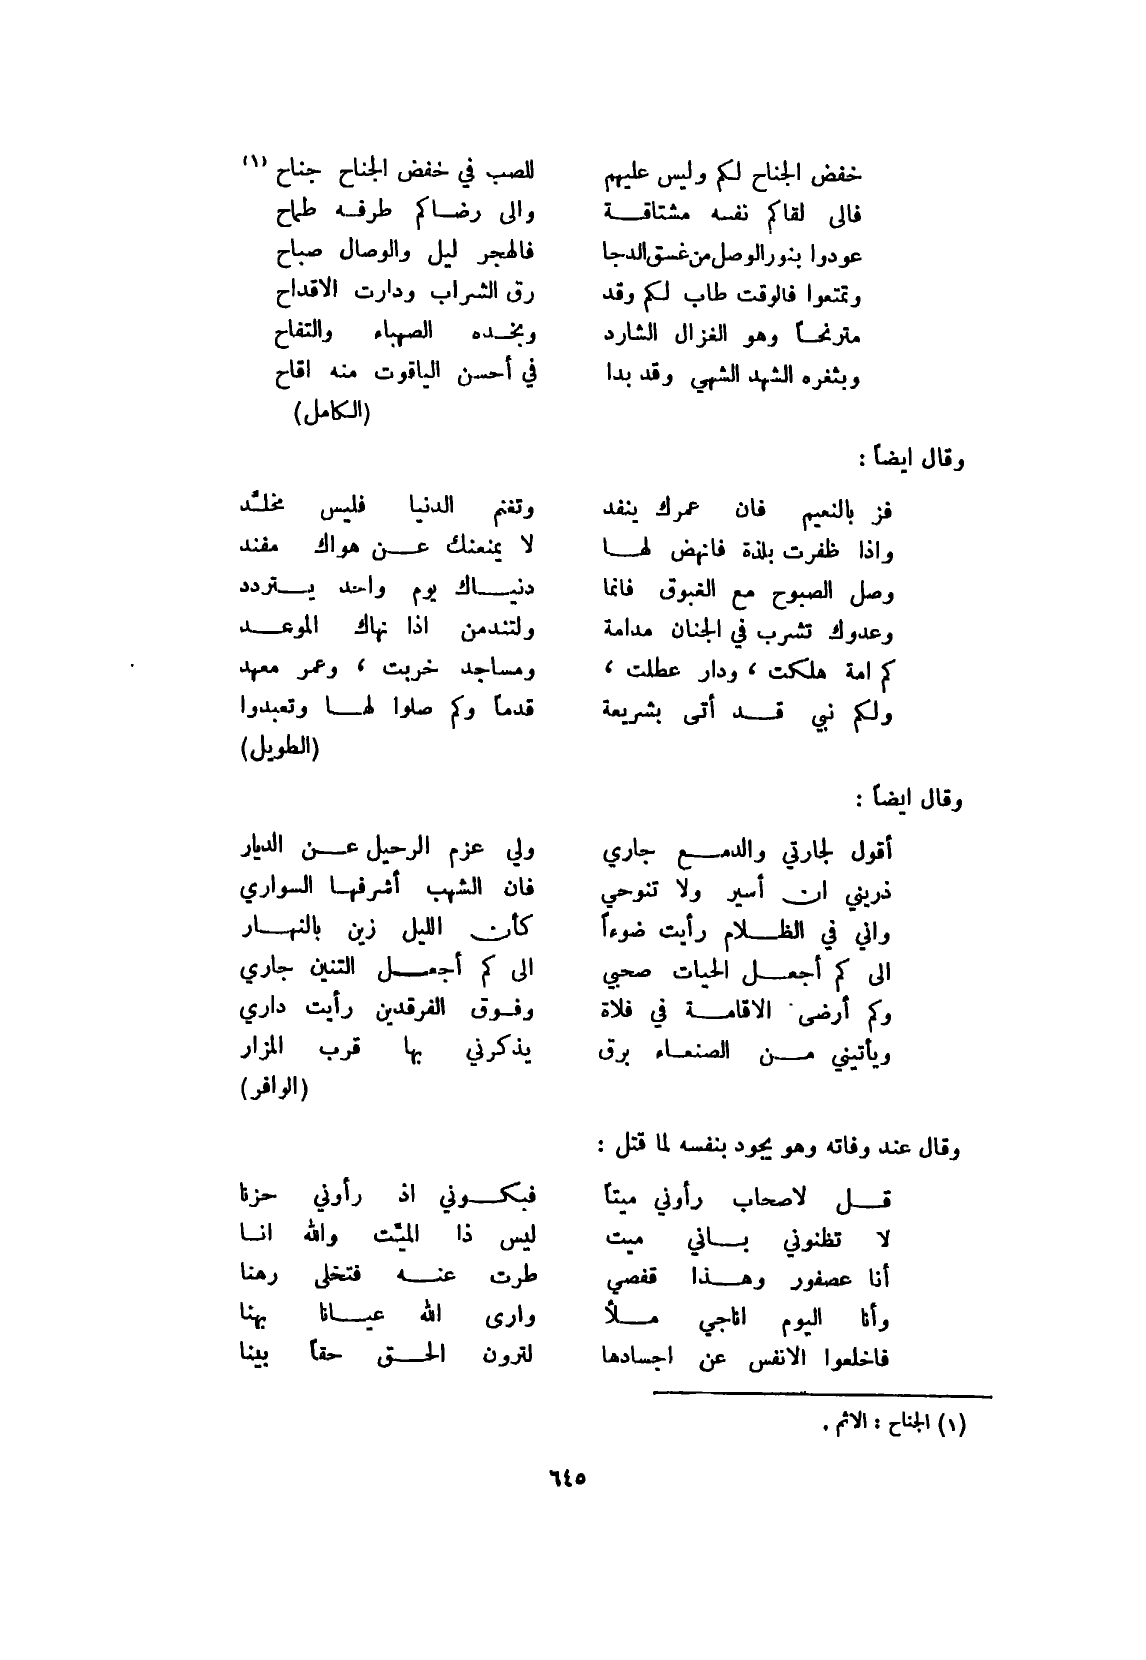 خفض الجناح لكم وليس عليهم للصب في خفض الجناح جناح (١)
فالى لقاكم نفسه مشتاقة والى رضاكم طرفه طماح
عودوا بنور الوصل من غسق الدجا فالهجر ليل والوصال صباح
وتمتعوا فالوقت طاب لكم وقد رق الشراب ودارت الاقداح
مترنحاً وهو الغزال الشارد وبخده الصهباء والتفاح
وبثغره الشهد الشهي وقد بدا في أحسن الياقوت منه اقاح
(الكامل)
وقال ايضاً :
فز بالنعيم فان عمرك ينفد وتغنم الدنيا فليس مخلَّد
واذا ظفرت بلذة فانهض لها لا يمنعنك عن هواك مفند
وصل الصبوح مع الغبوق فانما دنياك يوم واحد يتردد
وعدوك تشرب في الجنان مدامة ولتندمن اذا نهاك الموعد
كم امة هلكت ، ودار عطلت ، ومساجد خربت ، وعمر معهد
ولكم نبي قد أتى بشريعة قدماً وكم صلوا لها وتعبدوا
(الطويل)
وقال ايضاً :
أقول لجارتي والدمع جاري ولي عزم الرحيل عن الديار
ذريني ان أسير ولا تنوحي فان الشهب أشرفها السواري
واني في الظلام رأيت ضوءاً كأن الليل زين بالنهار
الى كم أجعل الحيات صحبي الى كم أجعل التنين جاري
وكم أرضى الاقامة في فلاة وفوق الفرقدين رأيت داري
ويأتيني من الصنعاء برق يذكرني بها قرب المزار
(الوافر)
وقال عند وفاته وهو يجود بنفسه لما قتل :
قل لاصحاب رأوني ميتاً فبكوني اذ رأوني حزنا
لا تظنوني باني ميت ليس ذا الميِّت والله انا
أنا عصفور وهذا قفصي طرت عنه فتخلى رهنا
وأنا اليوم اناجي ملأً وارى الله عيانا بهنا
فاخلعوا الانفس عن اجسادها لترون الحق حقاً بينا
(١) الجناح : الاثم .
٦٤٥